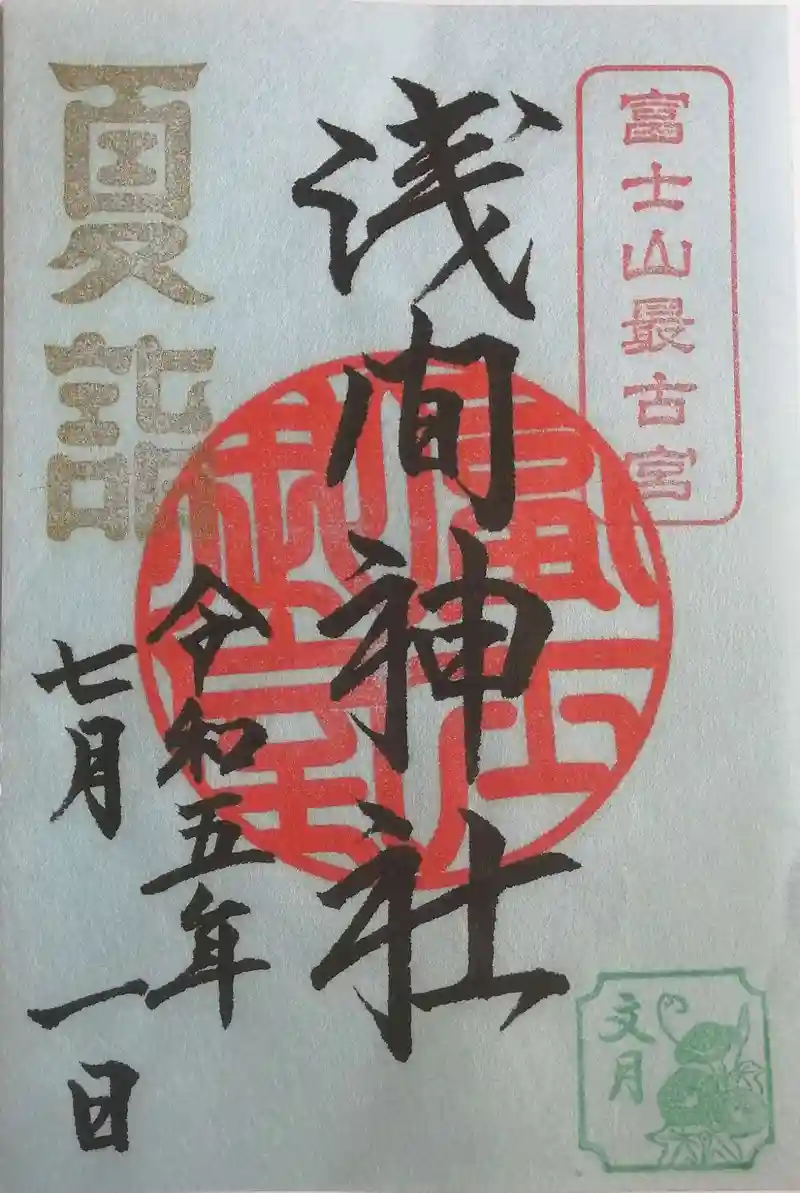 富士山最古宮
浅间神社
夏詣
令和五年
七月一日
文月